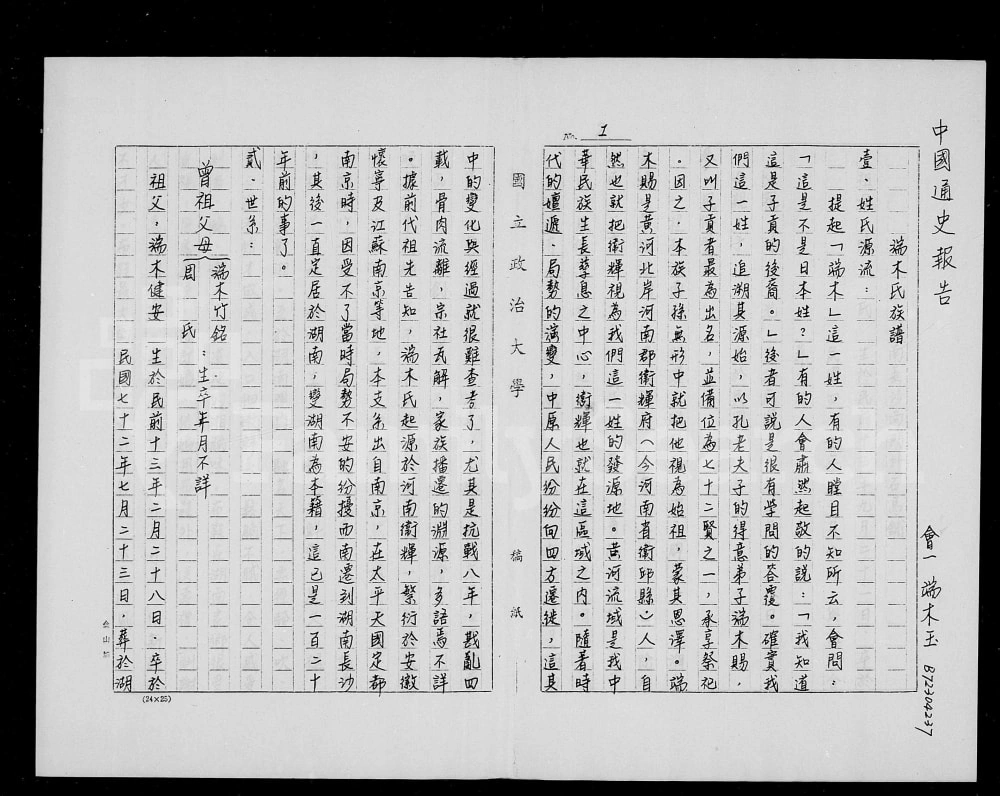 中國通史報告
會一 端木玉 B72304237
端木氏族譜
壹．姓氏源流：
提起「端木」這一姓，有的人瞠目不知所云，會問：
「這是不是日本姓？」有的人會肅然起敬的說：「我知道
這是子貢的後裔。」後者可說是很有學問的答覆。確實我
們這一姓，追溯其源始，以孔老夫子的得意弟子端木賜，
又叫子貢者最為出名，並備位為七十二賢之一，承享祭祀
。因之．本族子孫無形中就把他視為始祖，蒙其恩澤。端
木賜是黃河北岸河南郡衛輝府（今河南省衛邱縣）人，自
然也就把衛輝視為我們這一姓的發源地。黃河流域是我中
華民族生長孳息之中心，衛輝也就在這區域之內。隨着時
代的嬗遞．局勢的演變，中原人民紛紛向四方遷徙，這其
No. 1
國立政治大學 稿紙
中的變化與經過就很難查考了，尤其是抗戰八年，戡亂四
載，骨肉流離，宗社瓦解，家族播遷的淵源，多語焉不詳
。據前代祖先告知，端木氏起源於河南衛輝，繁衍於安徽
懷寧及江蘇南京等地，本支系出自南京，在太平天國定都
南京時，因受不了當時局勢不安的紛擾而南遷到湖南長沙
，其後一直定居於湖南，變湖南為本籍，這已是一百二十
年前的事了。
貳．世系：
曾祖父母｛端木竹銘 周氏：生卒年月不詳
祖父，端木健安 生於民前十三年二月二十八日．卒於
民國七十二年七月二十三日，葬於湖
(24×25)